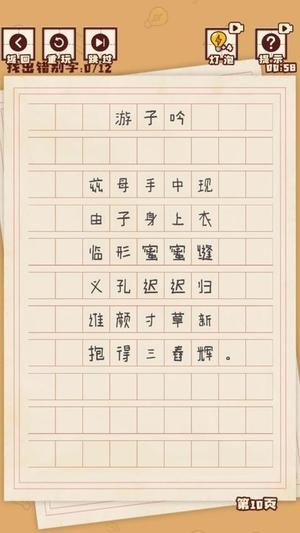 返回 重玩 跳过 灯泡 提示
找出错别字:0/12 00:58
游子吟
兹母手中现
由子身上衣
临形蜜蜜缝
义孔迟迟归
维颜寸草新
抱得三春辉。
第10页